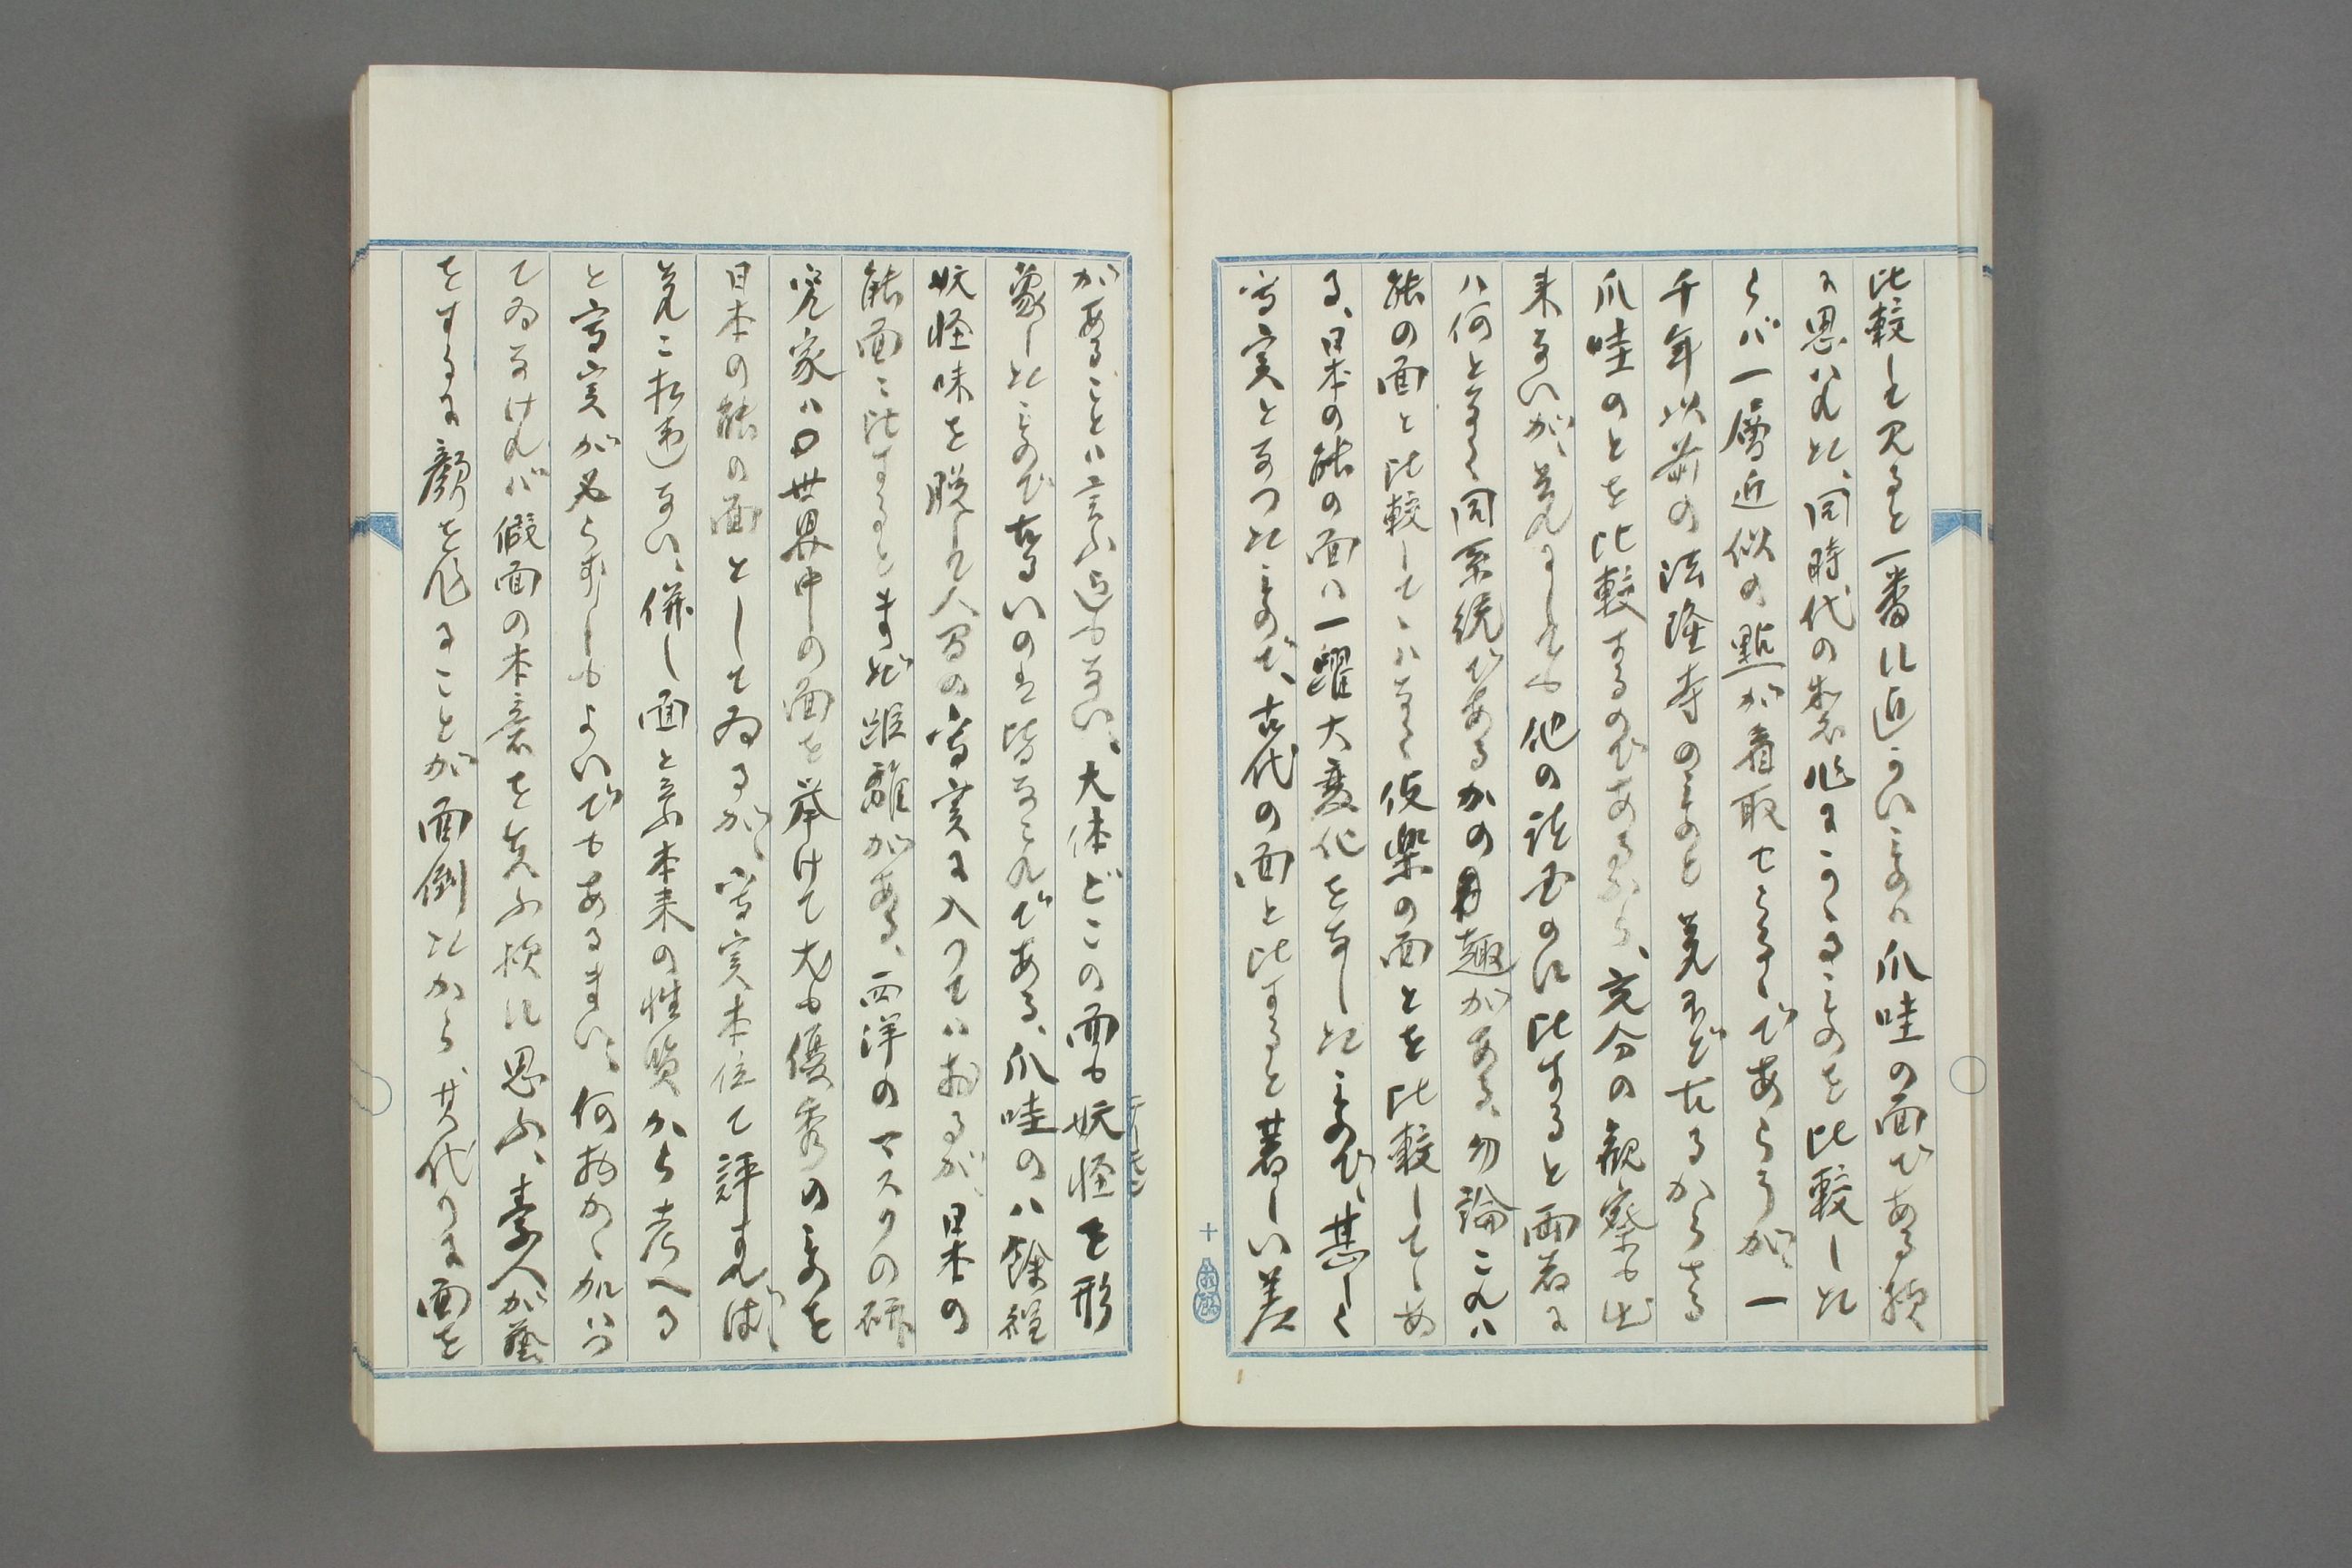 比較して見ると一番に近かいものハ爪哇の面である様
に思ハれた、同時代の製作にかゝるものを比較した
らバ一層近似の點が看取せらるゝであらうが、一
千年以前の法隆寺のものと夫れぞれ古るからざる
爪哇のとを比較するのであるから、充分の観察も出
来ないが、夫れにしても他の諸国のに比すると両者に
ハ何となく同系統であるかの趣がある、勿論これハ
能の面と比較してゝハなく伎楽の面とを比較してゝあ
る、日本の能の面ハ一躍大変化をなしたもので、甚しく
写実となつたもので、古代の面と比すると著しい差
十
があることハ言ふ迄もない、大体どこの面も妖怪を形
象したもので古るいのは皆なそれである、爪哇のハ餘程
妖怪味を脱して人間の写実に入つてハおるが、日本の
能面に比するとまだ距離がある、西洋のマスクの研
究家ハ世界中の面を挙けて尤も優秀のものを
日本の能の面としてゐるが、写実本位で評すれば、
夫に相違ない、併し面と云ふ本来の性質から考へる
と写実が必らずしもよいでもあるまい、何物かゝ加ハつ
てゐなけれバ假面の本意を失ふ様に思ふ、素人が藝
をするに顔を作ることが面倒だから、其代りに面を